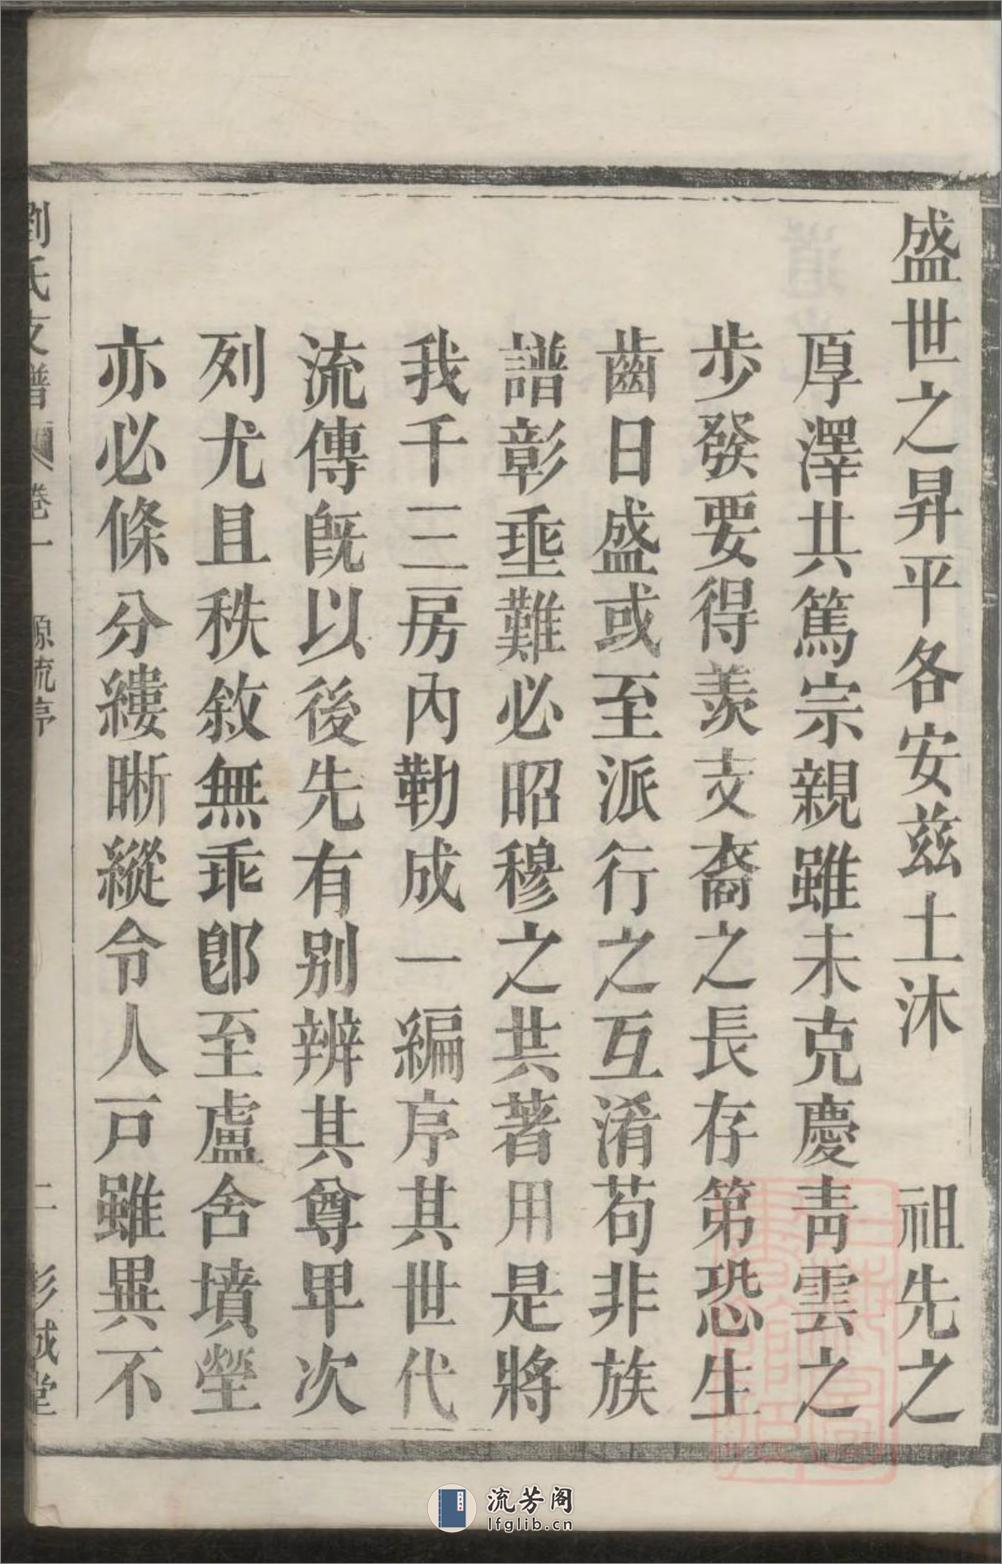 盛世之昇平各安兹土沐　祖先之
厚澤共篤宗親雖未克慶靑雲之
步發要得羨支裔之長存第恐生
齒日盛或至派行之互淆苟非族
譜彰垂難必昭穆之共著用是將
我千三房內勒成一編序其世代
流傳旣以後先有别辨其尊卑次
列尤且秩敘無乖卽至盧舍墳塋
亦必條分縷晰縱令人戸雖異不
劉氏支譜 卷一 源流序 二 彭城堂
流芳阁
lfglib.cn